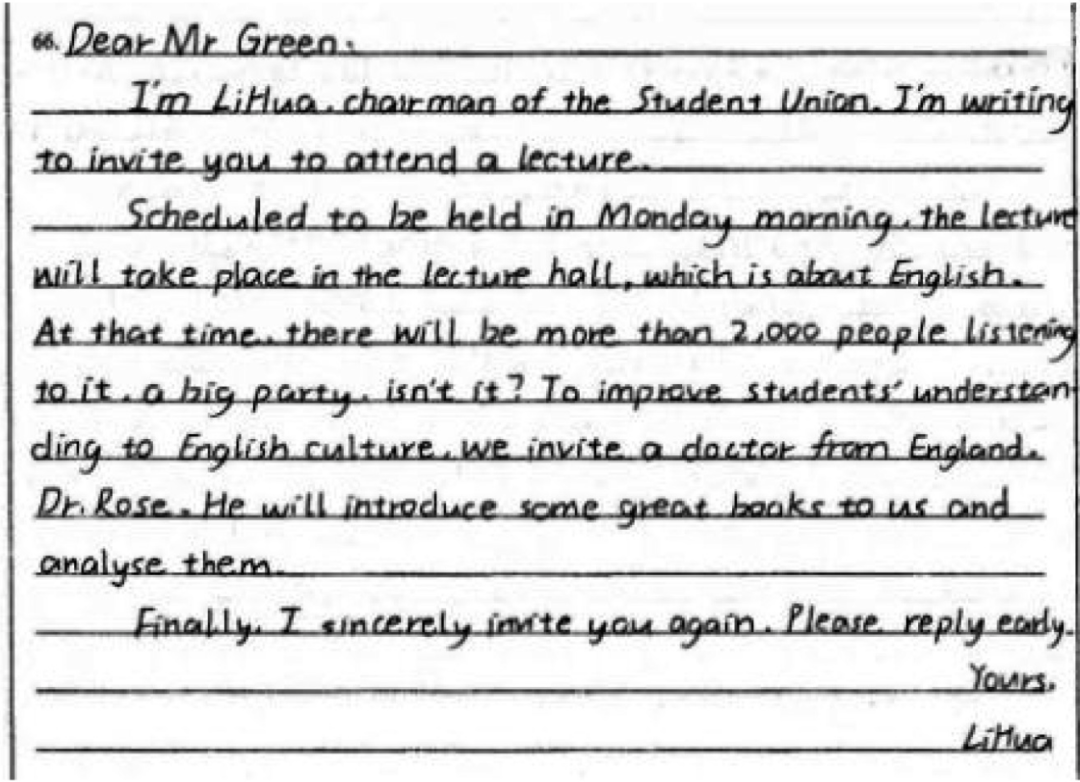 66. Dear Mr Green.
I'm LiHua, chairman of the Student Union. I'm writing
to invite you to attend a lecture.
Scheduled to be held in Monday morning, the lecture
will take place in the lecture hall, which is about English.
At that time, there will be more than 2,000 people listening
to it, a big party, isn't it? To improve students' understan-
ding to English culture, we invite a doctor from England.
Dr. Rose. He will introduce some great books to us and
analyse them.
Finally, I sincerely invite you again. Please reply early.
Yours,
LiHua